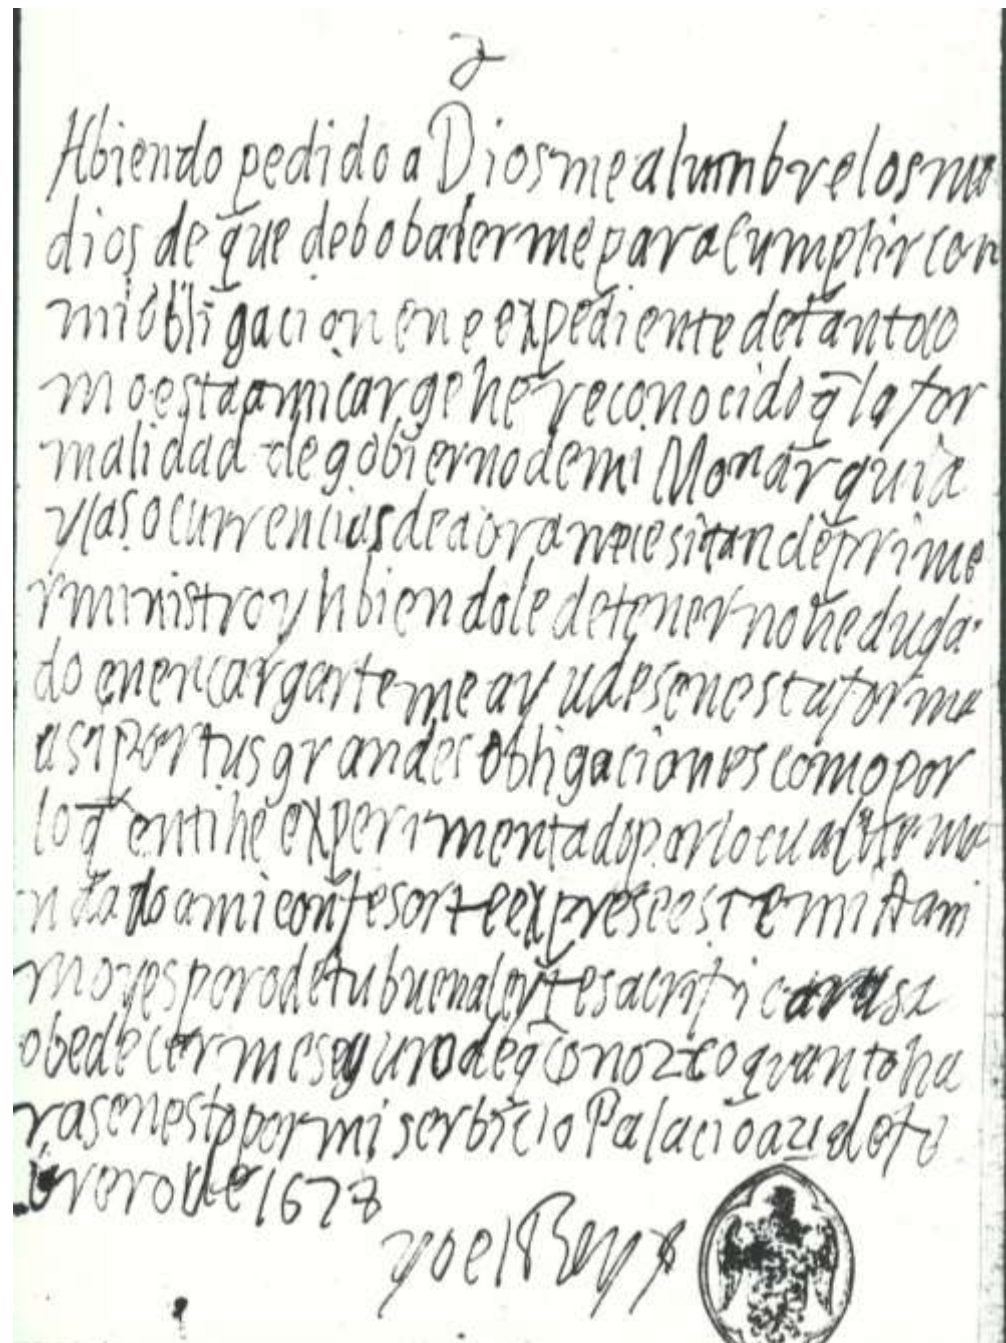 Hbiendo pedido a Dios me alumbre los me
dios de que debo balerme para Cumplir con
mi obligacion en e expediente de tanto co
mo esta a mi cargo he reconocido q̄ la for
malidad de gobierno de mi Monarquia
y las ocurrencias de aora necesitan de prime
r ministro y hbiendole de tener no he duda
do en encargarte me ayudes en esta forma
asi por tus grandes obligaciones como por
lo q̄ en ti he experimentado por lo cual he ma
ndado a mi confesor te exprese este mi Ani
mo y espero de tu buena ley te sacrificaras a
obedecerme seguro de q̄ conozco quanto ha
ras en esto por mi serbicio Palacio a 21 de fe
brero de 1677
yo el Rey